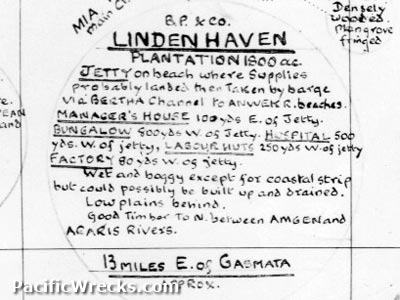 MIA
Main Ch
B.P. & CO.
LINDEN HAVEN
PLANTATION 1800 ac.
Densely
wooded.
Mangrove
fringed
JETTY on beach where Supplies
probably landed then Taken by barge
via BERTHA Channel to ANWEK R. beaches.
MANAGER'S HOUSE 100 yds E. of Jetty.
BUNGALOW 500 yds W. of Jetty. HOSPITAL 500
yds. W. of jetty, LABOUR HUTS 250 yds W. of jetty
FACTORY 80 yds W. of jetty.
Wet and boggy except for coastal strip
but could possibly be built up and drained.
Low plains behind.
Good Timber to N. between AMGEN and
ACARIS Rivers.
re.
PEAN
and
13 MILES E. of GASMATA
PPROX.
PacificWrecks.com